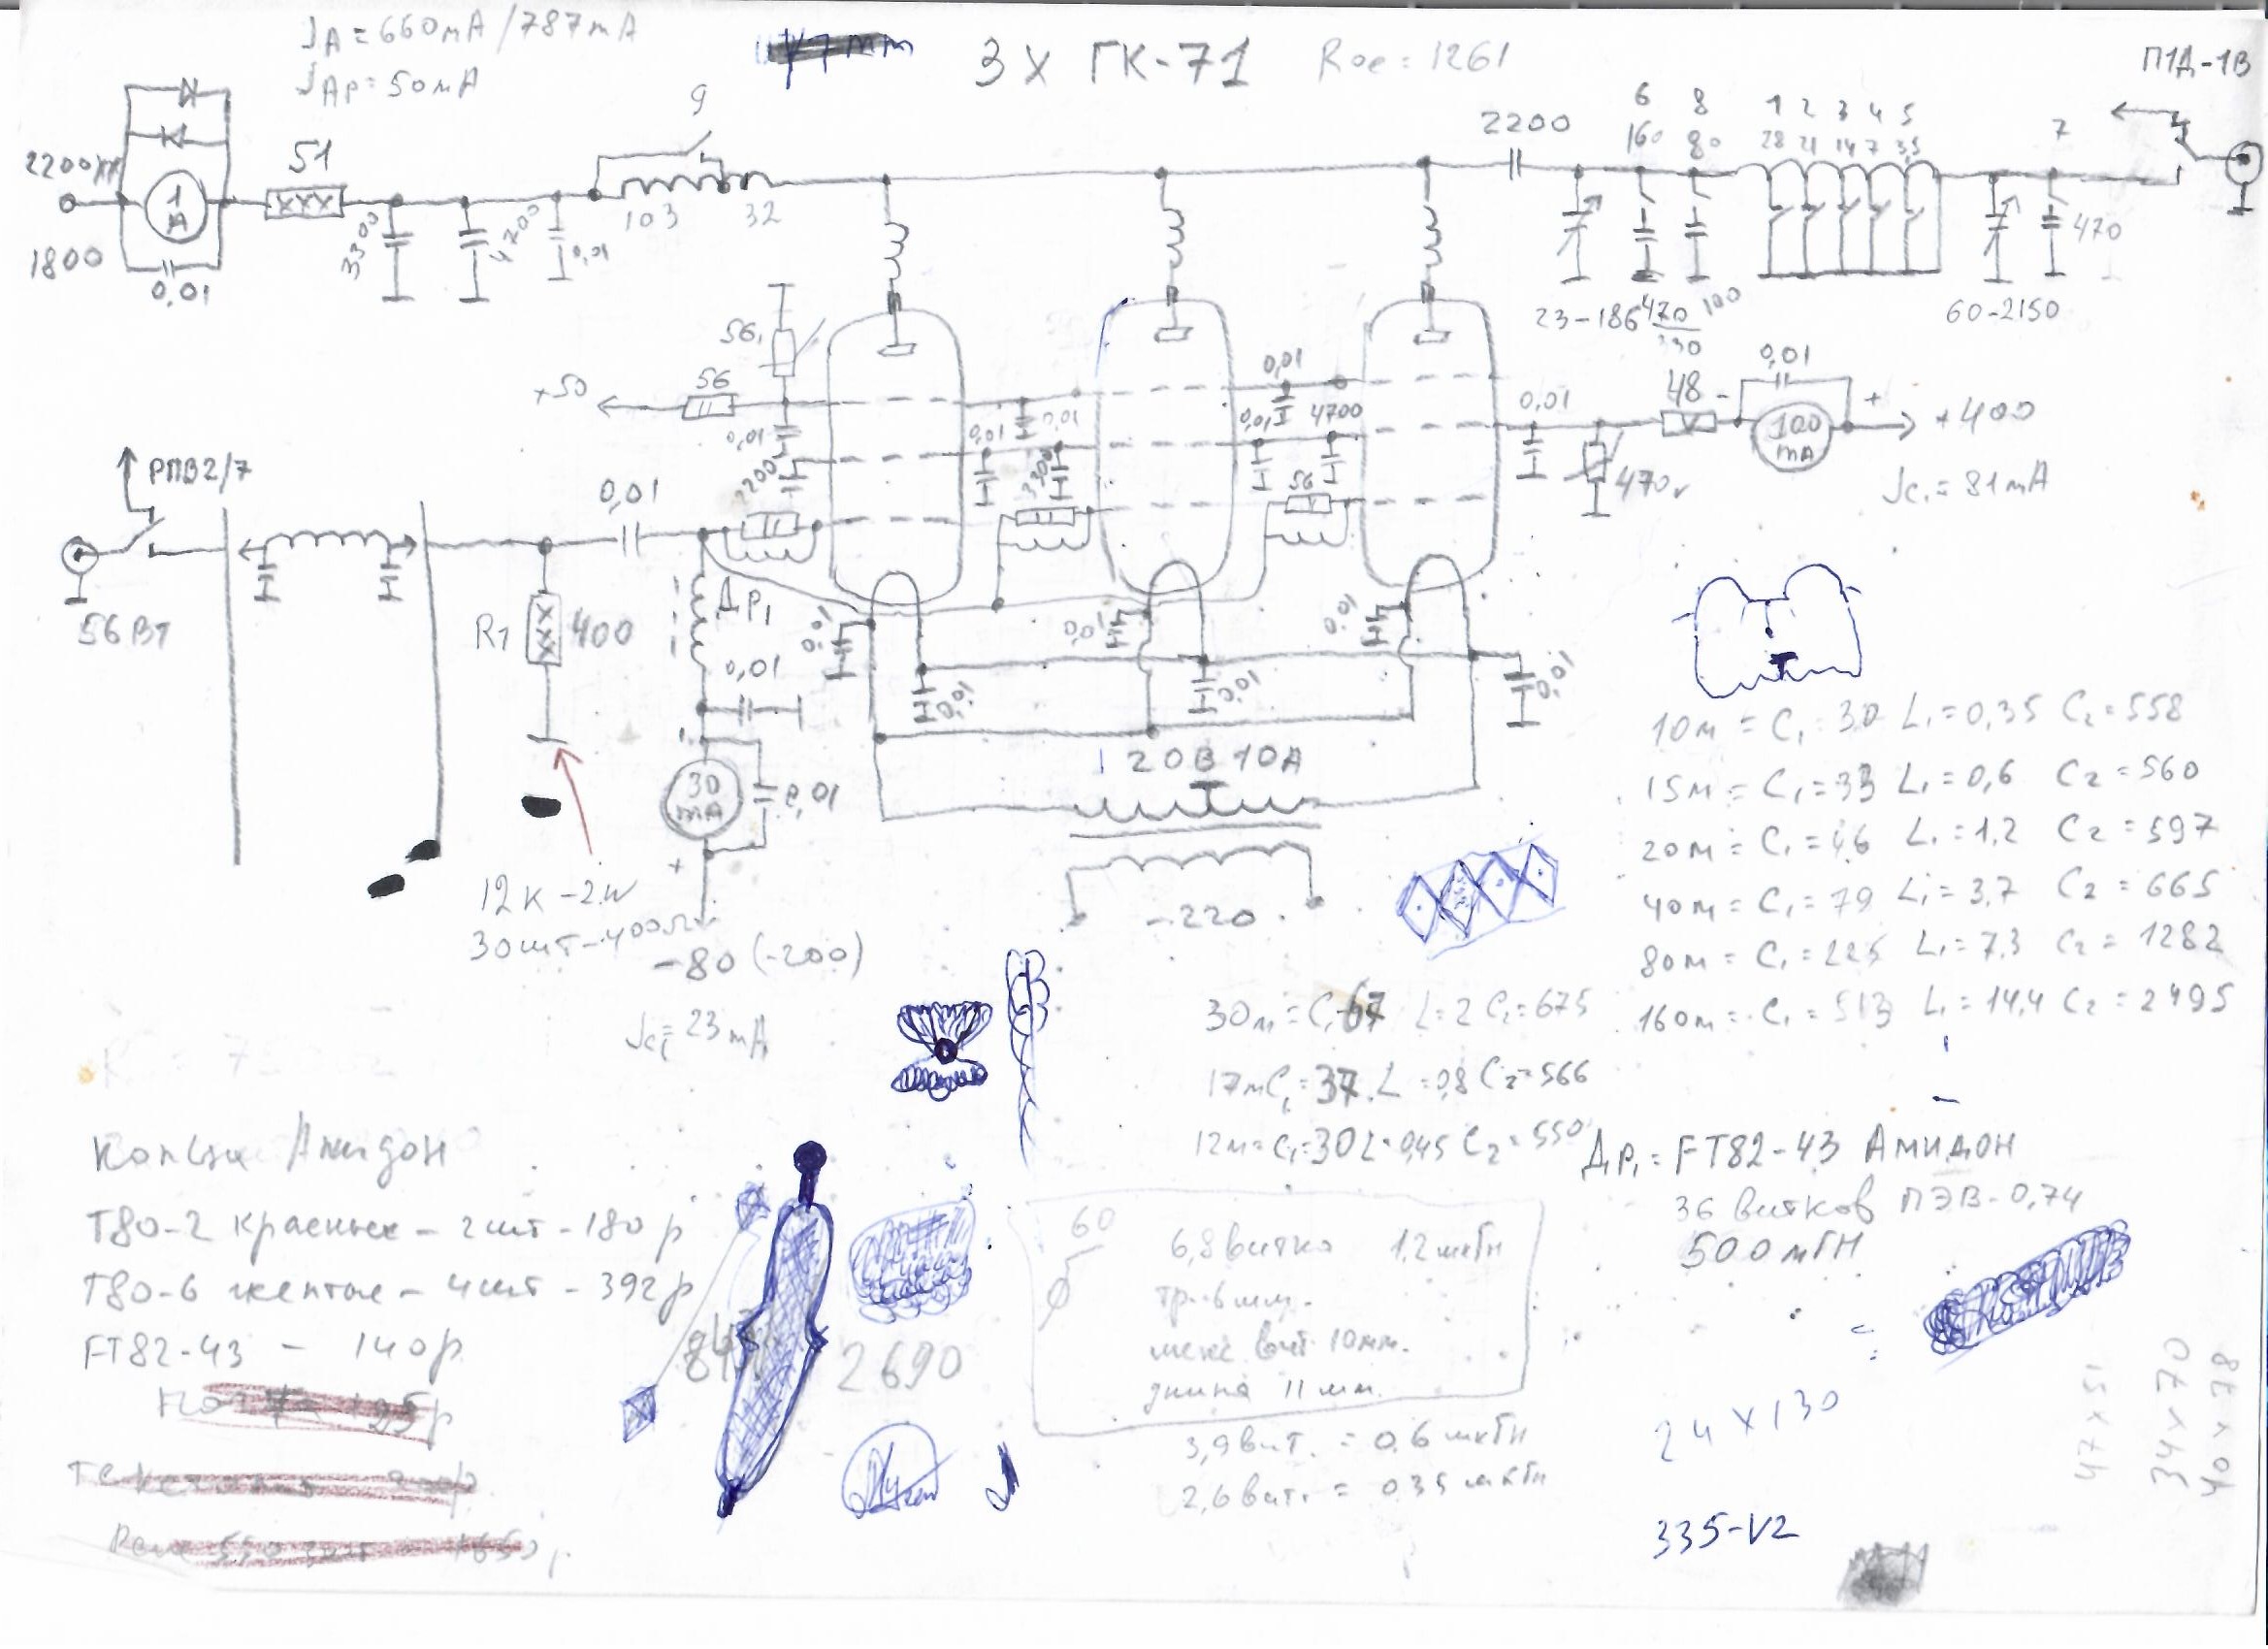 JA = 660мА/787mA
JAp = 50мА
3 х ГК-71
Rое = 1261
П1Д-1В
9
2200
6
160
8
80
1 2 3 4 5
28 21 14 7 3,5
7
1
А
51
1800
0,01
3300
4700
0,01
103
32
470
23-186
470
100
60-2150
56
56
+50
0,01
2200
0,01
0,01
0,01
3300
0,01
0,01
4700
56
0,01
470
48
-
0,01
100
mA
+
+400
Jc1 = 81mA
РПВ2/7
56Вт
0,01
R1
400
Др1
0,01
30
mA
0,01
+
-80 (-200)
Jc1 = 23mA
0,01
0,01
0,01
0,01
0,01
0,01
20В 10А
~220
12к-2w
30шт-400
10м = C1 = 30 L1 = 0,35 C2 = 558
15м = C1 = 33 L1 = 0,6 C2 = 560
20м = C1 = 46 L1 = 1,2 C2 = 597
40м = C1 = 79 L1 = 3,7 C2 = 665
80м = C1 = 225 L1 = 7,3 C2 = 1282
160м = C1 = 513 L1 = 14,4 C2 = 2495
30м = C1 67 L = 2 C2 = 675
17м C1 = 37 L = 0,8 C2 = 566
12м = C1 = 30 L = 0,45 C2 = 550
Др1 = FT82-43 Амидон
36 витков ПЭВ-0,74
500мГн
Кольца Амидон
Т80-2 красные - 2шт - 180р
Т80-6 желтые - 4шт - 392р
FT82-43 - 140р
2690
60
6,8 витка 1,2 мкГн
тр-6мм.
меж вит 10мм.
длина 11мм.
3,9 вит. = 0,6 мкГн
2,6 вит. = 0,35 мкГн
24 х 130
335-V2
47 х 51
34 х 70
40 х 78